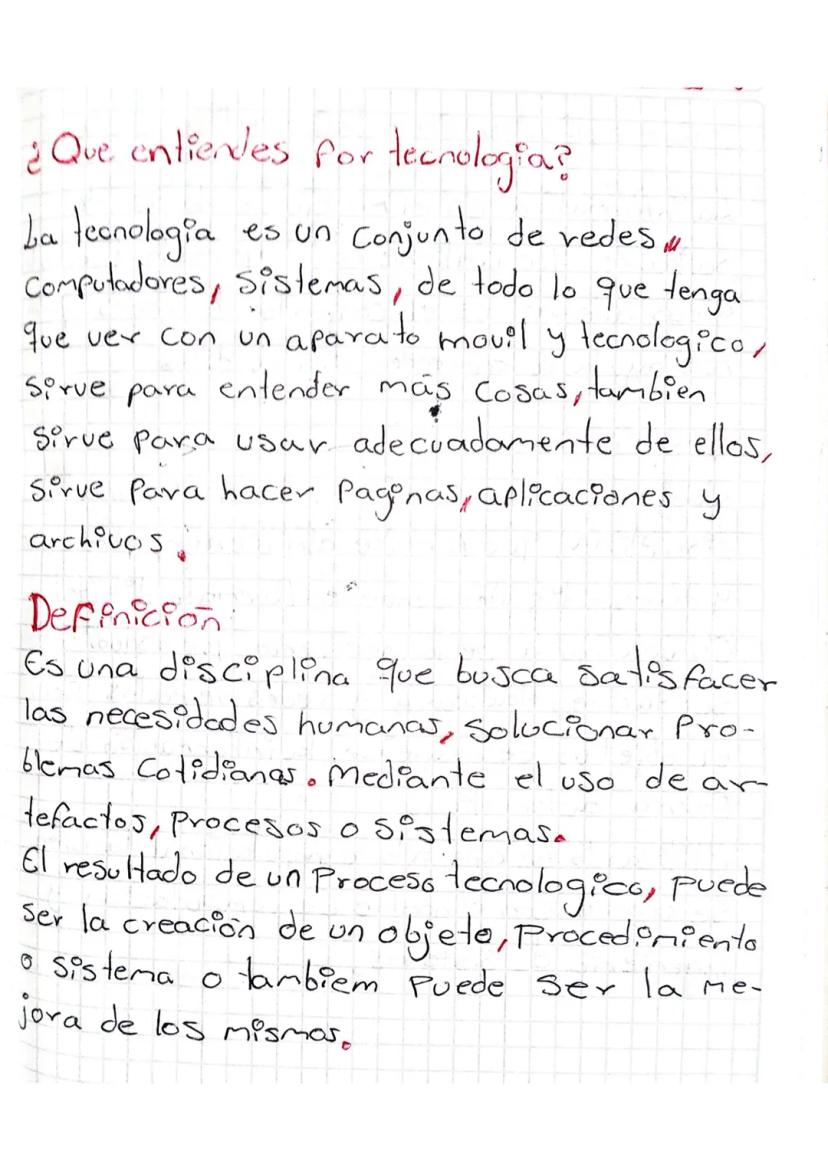 ¿Que entiendes por tecnologia?
La tecnologia es un conjunto de redes,
computadores, sistemas, de todo lo que tenga
que ver con un aparato movil y tecnologico,
sirve para entender más cosas, tambien
sirve para usar adecuadamente de ellos,
sirve para hacer paginas, aplicaciones y
archivos.
Definición
Es una disciplina que busca satisfacer
las necesidades humanas, solucionar pro-
blemas cotidianos. mediante el uso de ar-
tefactos, procesos o sistemas.
El resultado de un proceso tecnologico, puede
ser la creación de un objeto, procedimiento
o sistema o tambiem puede ser la me-
jora de los mismos.